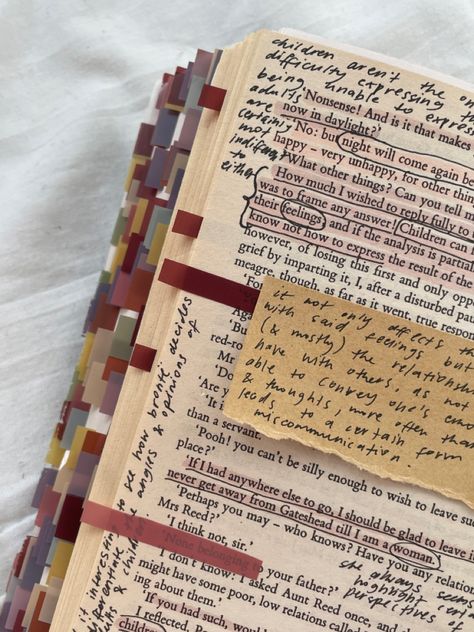 children aren't the
difficulty expressing
being unable to expre
adults
are
certainly
not
indifferent
to
either
'Nonsense! And is it that makes
now in daylight?'
'No: but night will come again be
happy – very unhappy, for other thin
'What other things? Can you tell
How much I wished to reply fully to
was to frame any answer! Children can
their feelings; and if the analysis is partia
know not how to express the result of the
however, of losing this first and only opp
grief by imparting it, I, after a disturbed pau
meagre, though, as far as it went, true respon
'Fo
'But
red-ro
Mr
'Are yo
than a servant.
it not only affects th
with said feelings but
(& mostly) the relationsh
have with others, as not
able to convey one's emo
& thoughts, more often tha
leads to a certain form
miscommunication.
'Pooh! you can't be silly enough to wish to leave s
place?'
'If I had anywhere else to go, I should be glad to leave it
never get away from Gateshead till I am a woman.
'Perhaps you may – who knows? Have you any relati
Mrs Reed?'
'I think not, sir.'
'None belonging to your father?'
'I don't know: I asked Aunt Reed once, and
might have some poor, low relations called
ing about them.'
'If you had such, would
I reflected. Po
children
to see how brontë decides
differentiate the angles & opinions of
& childre
she always seem
highlight cert
perspectives of